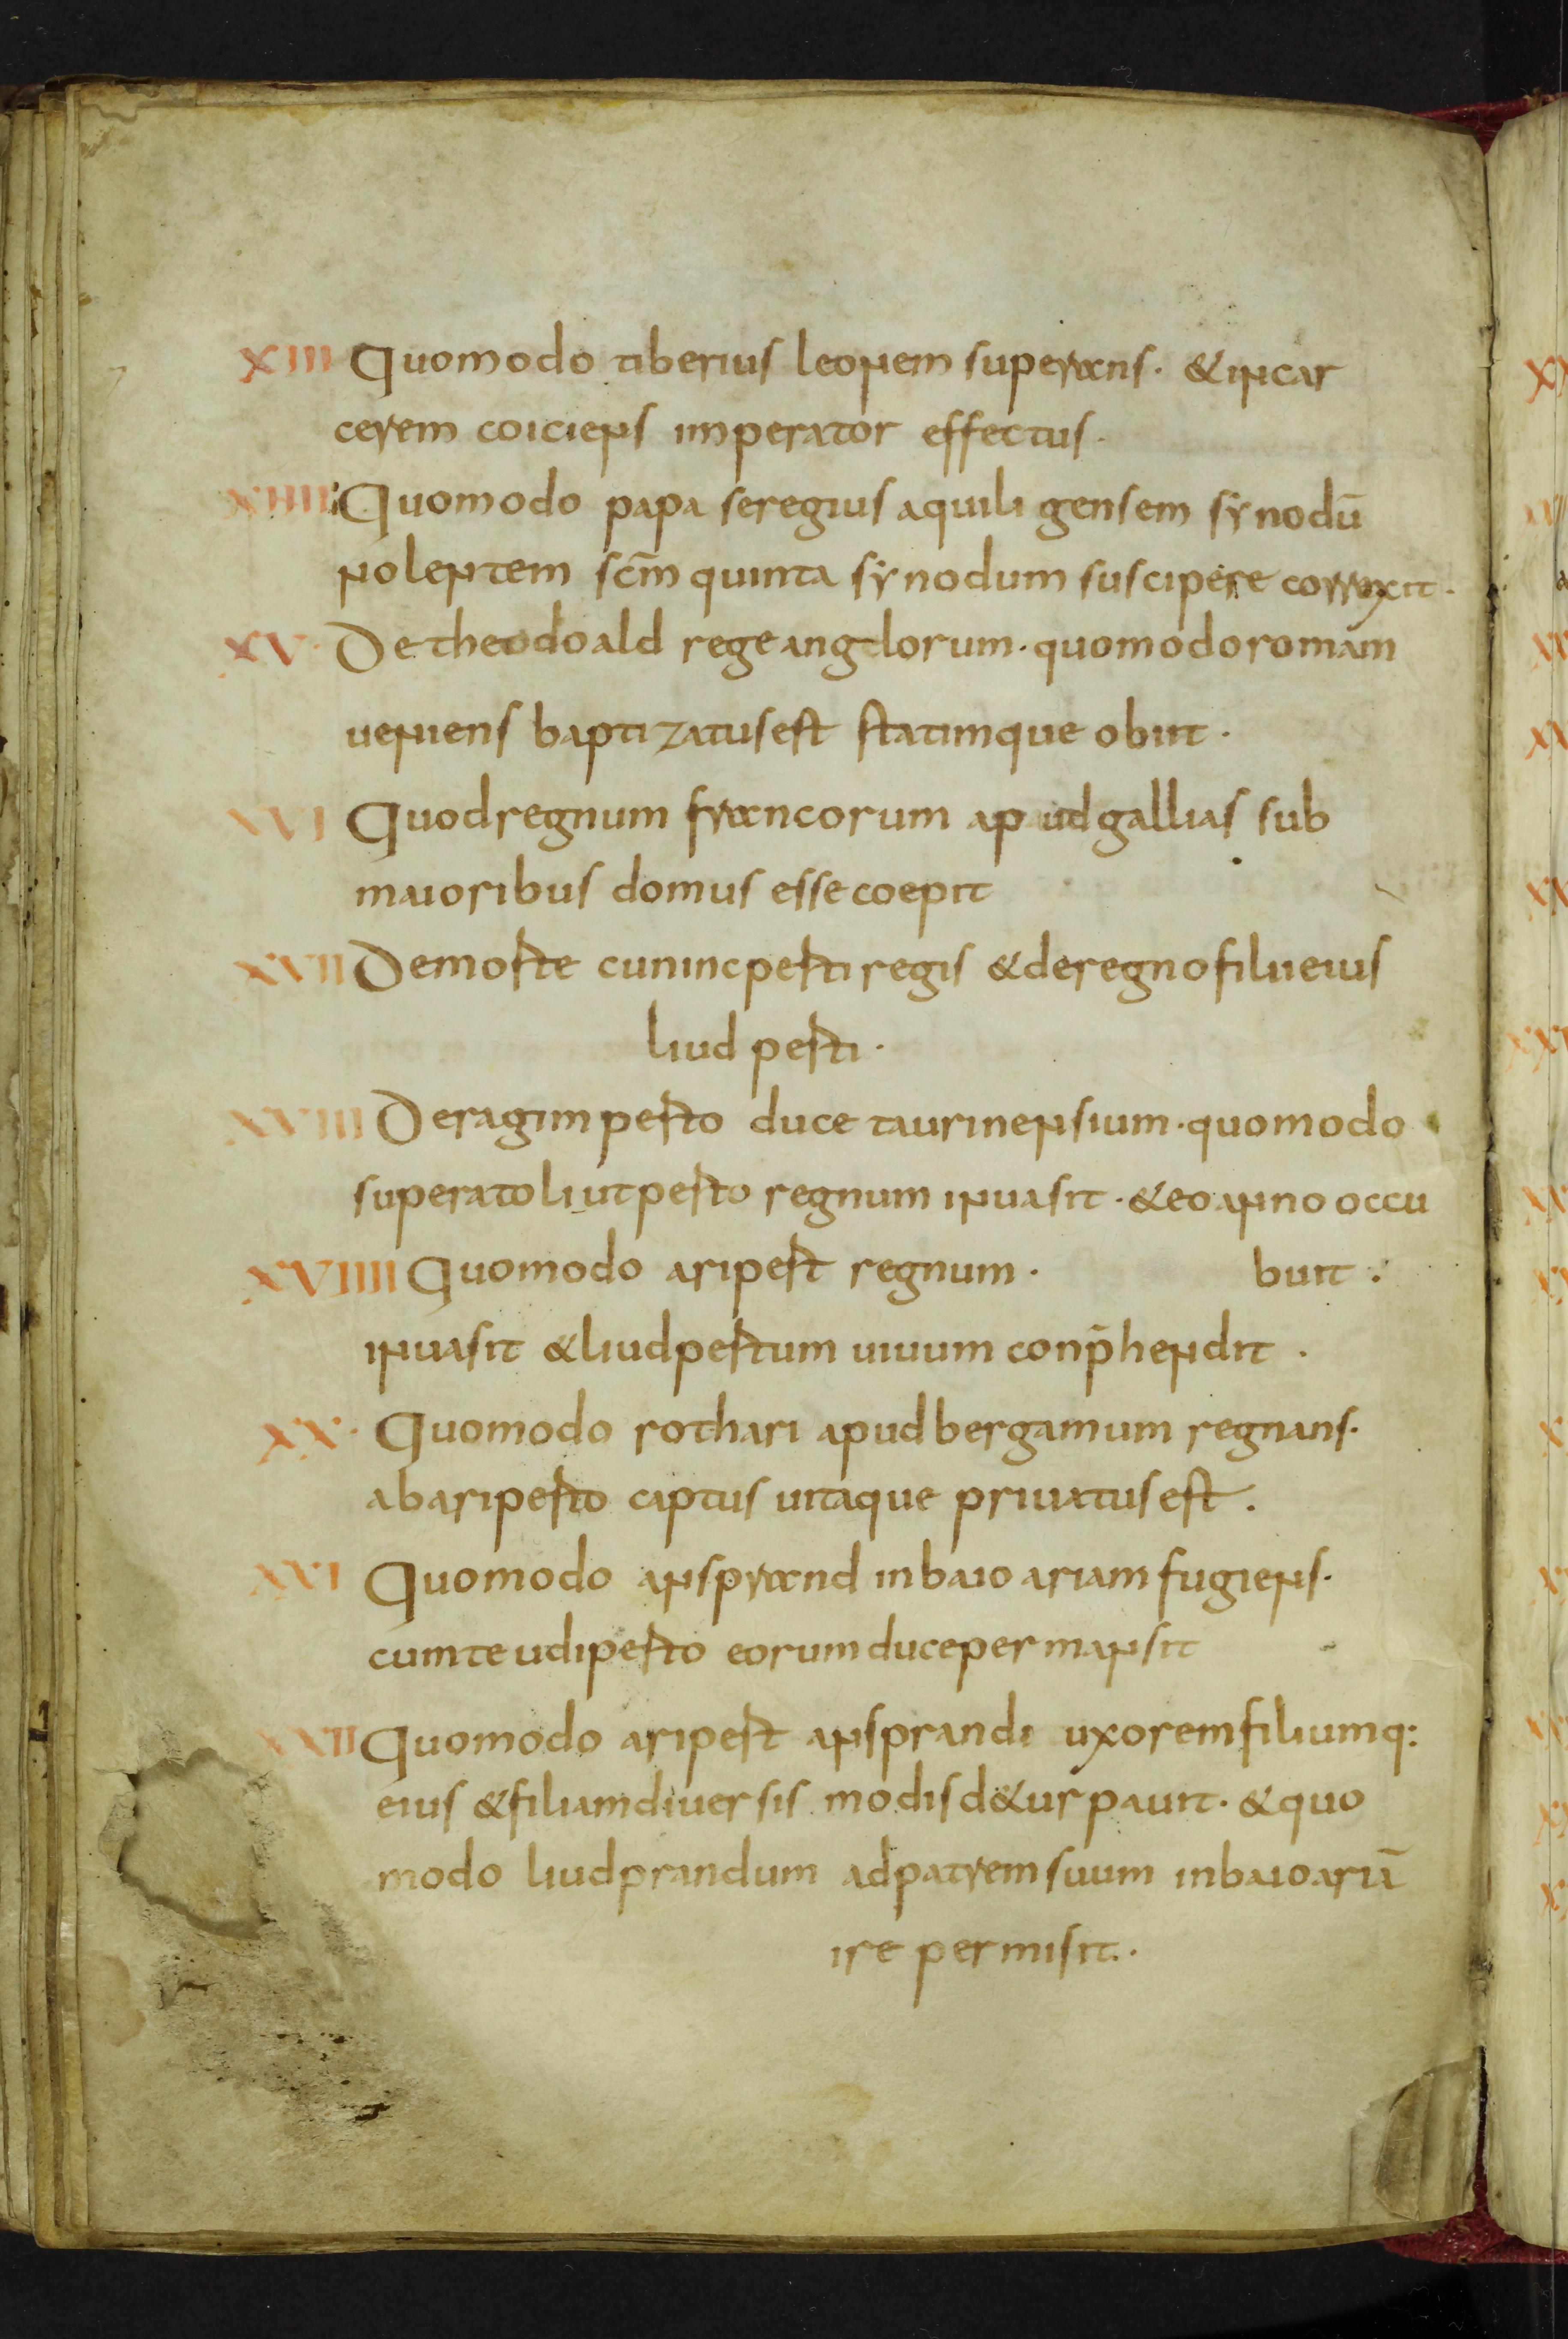 XIII Quomodo tiberius leonem superans. & incar
cerem coiciens imperator effectus.
XIIII Quomodo papa seregius aquili gensem synodū
nolentem sc̄m quinta synodum suscipere correxit.
XV. De theodoald rege angelorum. quomodo romam
ueniens baptizatus est statimque obiit.
XVI Quod regnum francorum apud gallias sub
maioribus domus esse coepit
XVII De morte cunincperti regis & de regno filii eius
liudperti.
XVIII De ragimperto duce taurinensium. quomodo
superato liutperto regnum inuasit. & eo anno occu
XVIIII Quomodo aripert regnum. buit.
inuasit & liudpertum uiuum conp̄hendit.
XX. Quomodo rothari apud bergamum regnans.
ab ariperto captus uitaque priuatus est.
XXI Quomodo ansprand in baioariam fugiens.
cum teudiperto eorum duce permansit
XXII Quomodo aripert ansprandi uxorem filiumq:
eius & filiam diuersis modis d&urpauit. & quo
modo liudprandum ad patrem suum in baioariā
ire permisit.